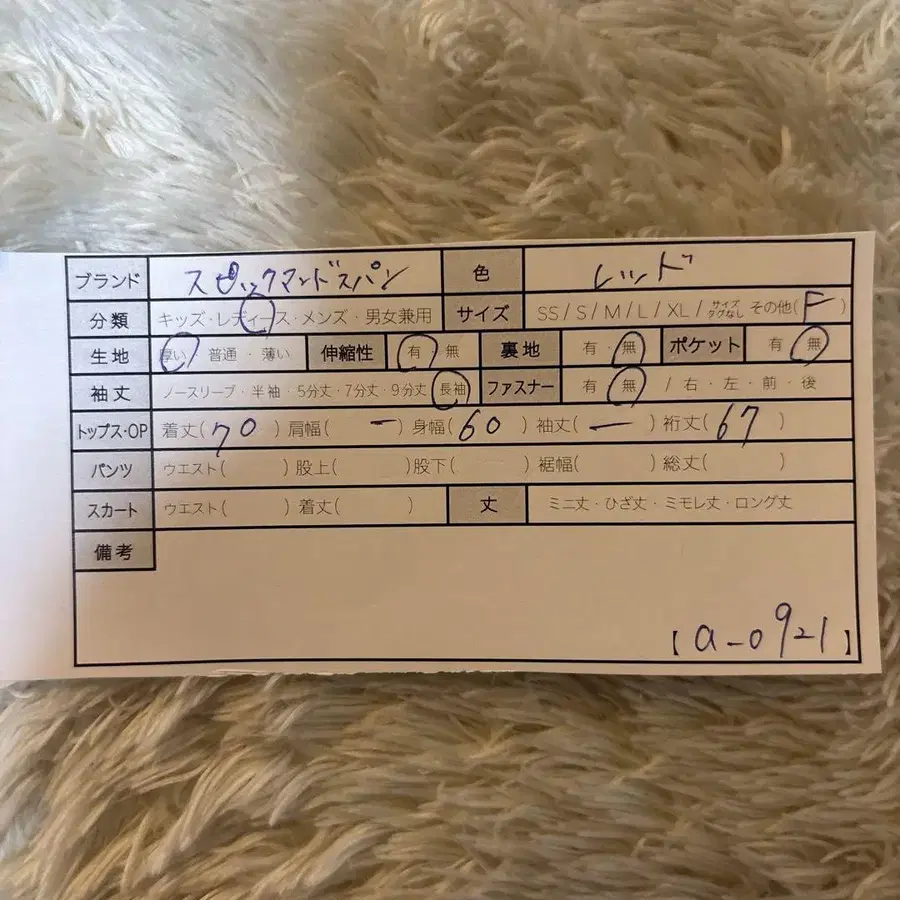 ブランド スピックアンドスパン 色 レッド
分類 キッズ・レディース・メンズ・男女兼用 サイズ SS / S / M / L / XL / サイズタグなし その他( F )
生地 厚い・普通・薄い 伸縮性 有・無 裏地 有・無 ポケット 有・無
袖丈 ノースリーブ・半袖・5分丈・7分丈・9分丈・長袖 ファスナー 有・無 / 右・左・前・後
トップス・OP 着丈( 70 ) 肩幅( ー ) 身幅( 60 ) 袖丈( ー ) 裄丈( 67 )
パンツ ウエスト( ) 股上( ) 股下( ) 裾幅( ) 総丈( )
スカート ウエスト( ) 着丈( ) 丈 ミニ丈・ひざ丈・ミモレ丈・ロング丈
備考
【a-0921】